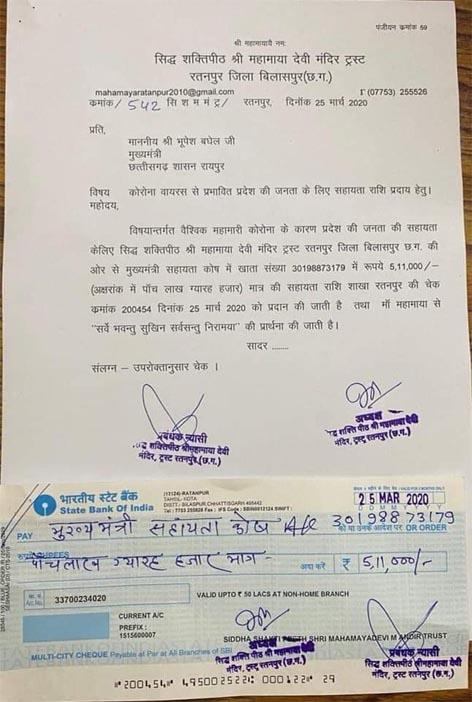 पंजीयन क्रमांक 59
श्री महामायायै नमः
सिद्ध शक्तिपीठ श्री महामाया देवी मंदिर ट्रस्ट
रतनपुर जिला बिलासपुर(छ.ग.)
mahamayaratanpur2010@gmail.com (07753) 255526
क्रमांक/ 542 सि श म मं ट्र/ रतनपुर, दिनाँक 25 मार्च 2020
प्रति,
माननीय श्री भूपेश बघेल जी
मुख्यमंत्री
छत्तीसगढ़ शासन रायपुर
विषय कोरोना वायरस से प्रभावित प्रदेश की जनता के लिए सहायता राशि प्रदाय हेतु।
महोदय,
विषयान्तर्गत वैश्विक महामारी कोरोना के कारण प्रदेश की जनता की सहायता
केलिए सिद्ध शक्तिपीठ श्री महामाया देवी मंदिर ट्रस्ट रतनपुर जिला बिलासपुर छ.ग. की
ओर से मुख्यमंत्री सहायता कोष में खाता संख्या 30198873179 में रूपये 5,11,000/–
(अक्षरांक में पाँच लाख ग्यारह हजार) मात्र की सहायता राशि शाखा रतनपुर की चेक
क्रमांक 200454 दिनाँक 25 मार्च 2020 को प्रदान की जाती है तथा माँ महामाया से
"सर्वे भवन्तु सुखिन सर्वसन्तु निरामया" की प्रार्थना की जाती है।
सादर .......
संलग्न – उपरोक्तानुसार चेक ।
प्रबंधक न्यासी
सिद्ध शक्तिपीठ श्री महामाया देवी
मंदिर, ट्रस्ट रतनपुर(छ.ग.)
अध्यक्ष
सिद्ध शक्ति पीठ श्री महामाया देवी
मंदिर, ट्रस्ट रतनपुर (छ.ग.)
भारतीय स्टेट बैंक
State Bank Of India
(13124)-RATANPUR
TAHSIL-KOTA
DISTT.: BILASPUR CHHATTISGARH 495442
25 MAR 2020
PAY मुख्यमंत्री सहायता कोष A/c 30198873179
को या उनके आदेश पर OR ORDER
RUPEES पाँच लाख ग्यारह हजार मात्र
अदा करें ₹ 5,11,000/-
33700234020
VALID UPTO ₹ 50 LACS AT NON-HOME BRANCH
CURRENT A/C
PREFIX :
1515600007
SIDDHA SHAKTI PEETH SHRI MAHAMAYADEVI MANDIR TRUST
MULTI-CITY CHEQUE Payable at Par at All Branches of SBI
अध्यक्ष
सिद्ध शक्ति पीठ श्री महामाया देवी
मंदिर, ट्रस्ट रतनपुर (छ.ग.)
प्रबंधक न्यासी
सिद्ध शक्तिपीठ श्रीमहामाया देवी
मंदिर, ट्रस्ट रतनपुर(छ.ग.)
"200454" 495002522: 000122" 29